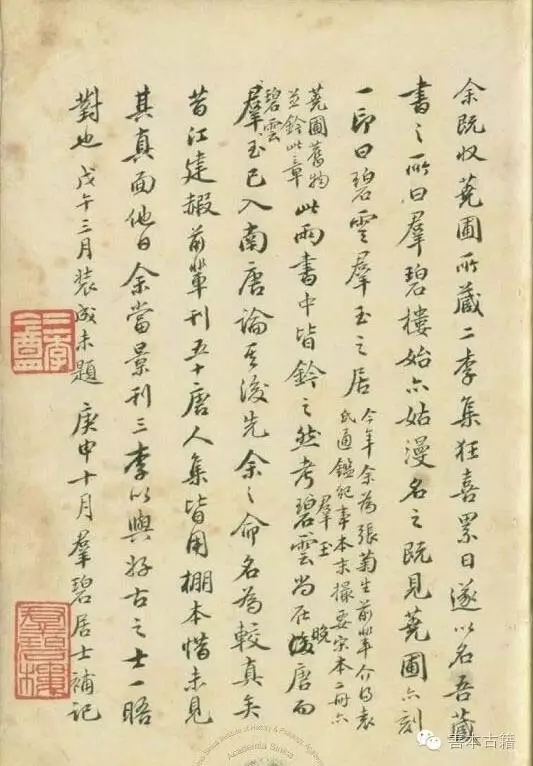 余既收蕘圃所藏二李集狂喜累日遂以名吾藏
書之所曰羣碧樓始亦姑漫名之既見蕘圃亦刻
一印曰碧雲羣玉之居
今年余為張菊生前輩介得袁
氏通鑑紀事本末撮要宋本二冊亦
蕘圃舊物
並鈐此章
此兩書中皆鈐之然考碧雲尚在後唐而
羣玉
晚
碧雲
羣玉已入南唐論其後先余之命名為較真矣
昔江建霞前輩刊五十唐人集皆用棚本惜未見
其真面他日余當景刊三李以與好古之士一晤
對也戊午三月裝成未題 庚申十月羣碧居士補記
三李盦
羣碧樓
Academia Sinica
善本古籍